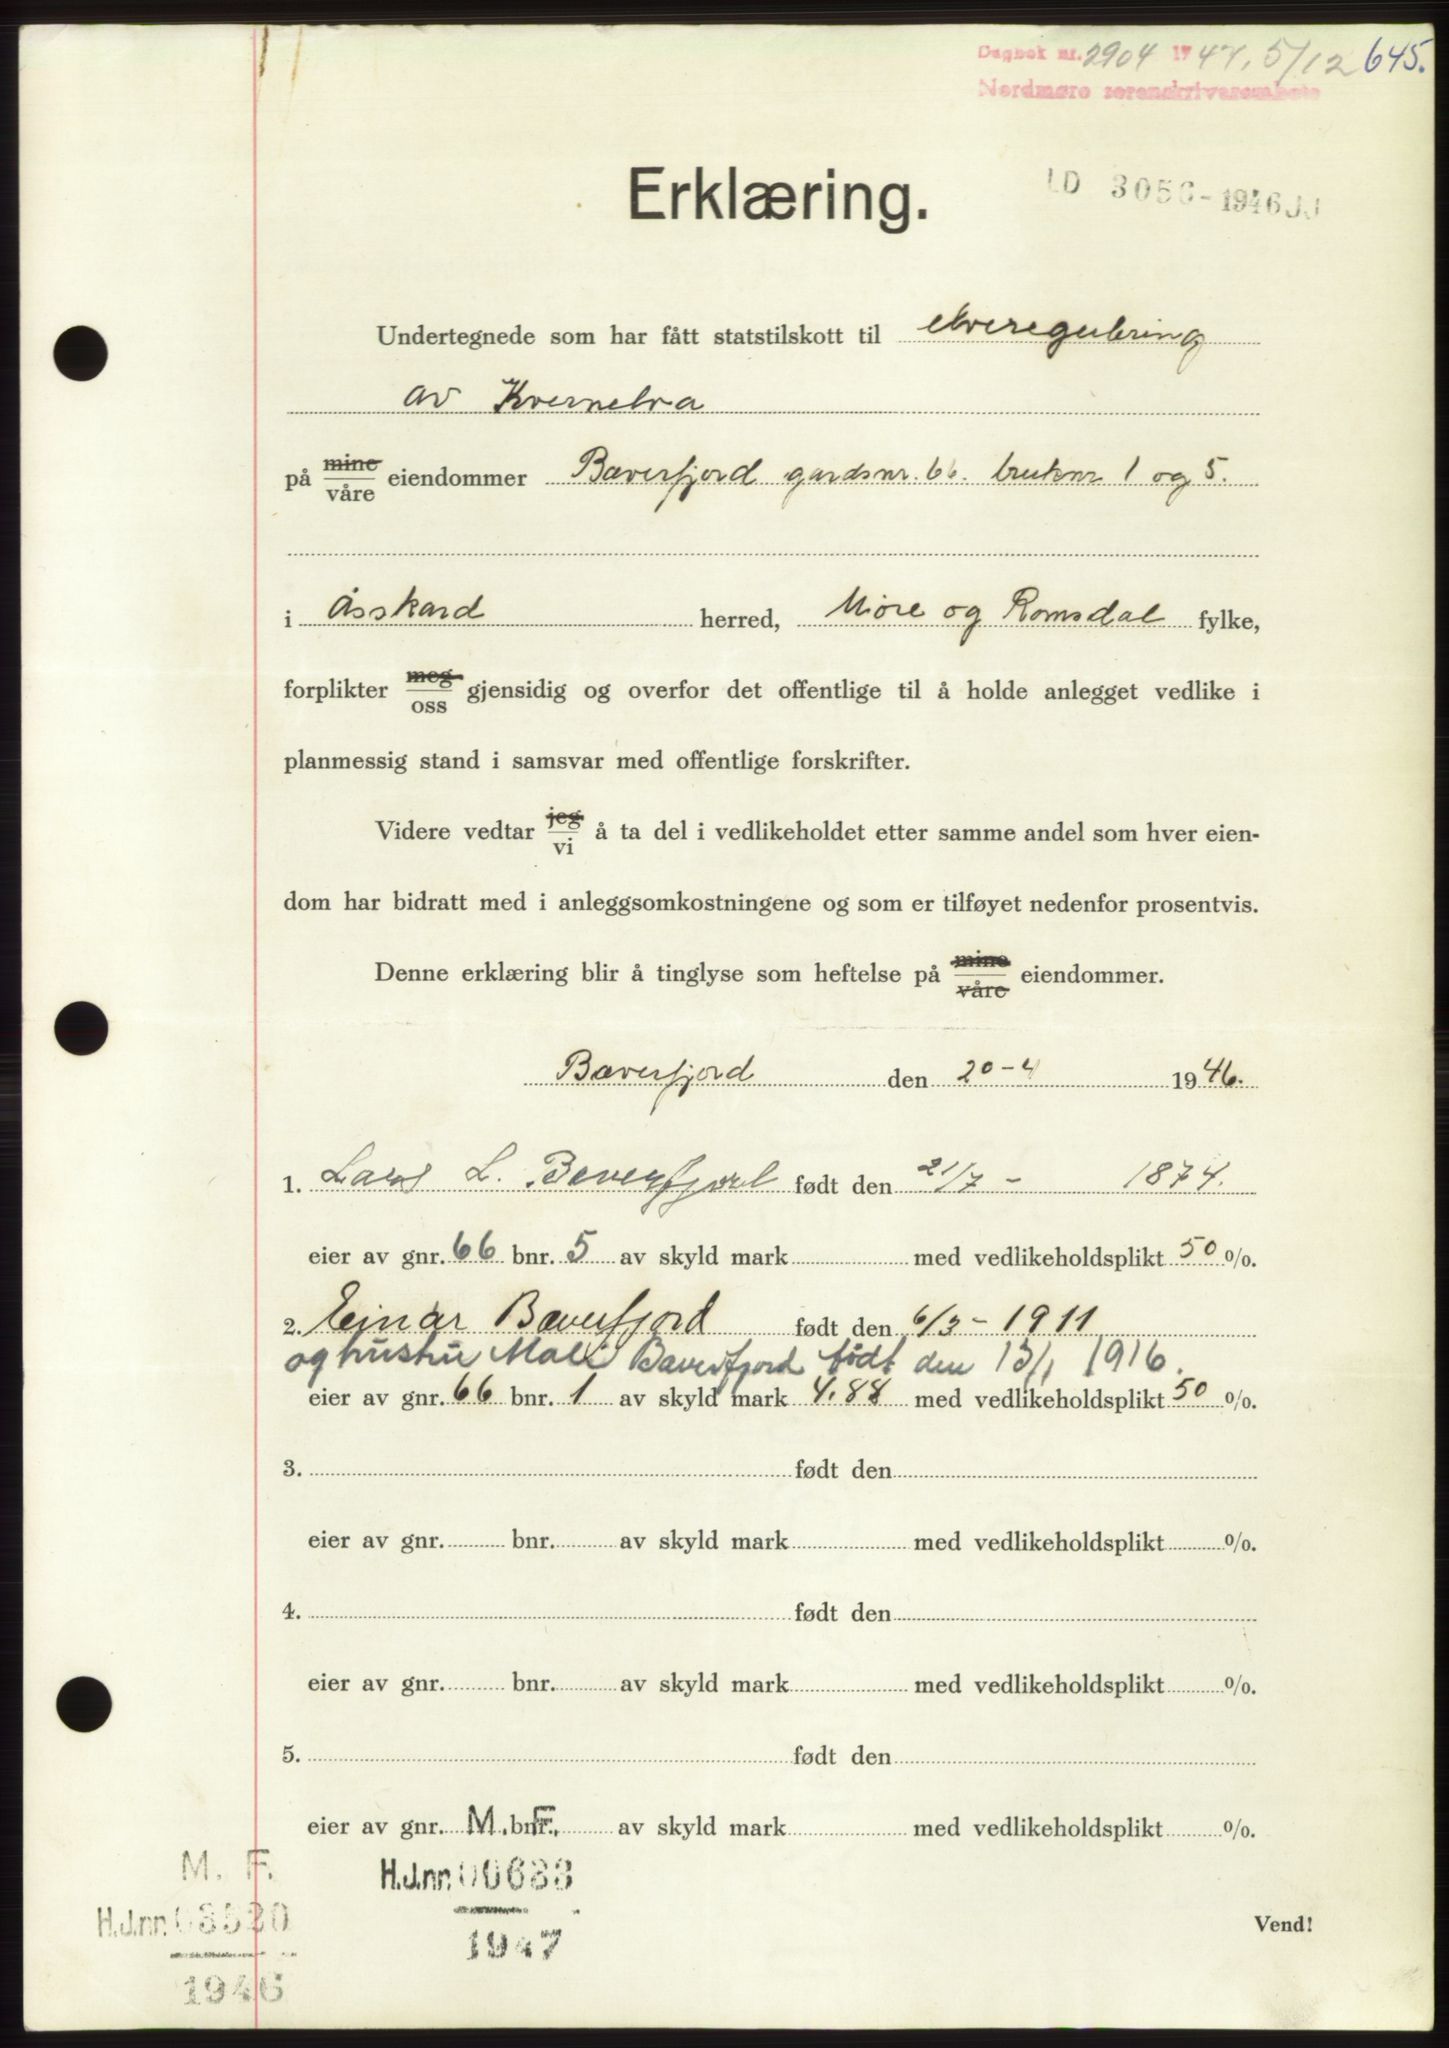 Dagbok nr. 2904 1947, 5/12 645.
Nordmøre sorenskriverembete
Erklæring.
LD 3056-1946 JJ
Undertegnede som har fått statstilskott til elveregulering
av Kvernelva
på mine/våre eiendommer Bæverfjord gardsnr. 66. bruknr 1 og 5.
i Åsskard herred, Møre og Romsdal fylke,
forplikter meg/oss gjensidig og overfor det offentlige til å holde anlegget vedlike i
planmessig stand i samsvar med offentlige forskrifter.
Videre vedtar jeg/vi å ta del i vedlikeholdet etter samme andel som hver eien-
dom har bidratt med i anleggsomkostningene og som er tilføyet nedenfor prosentvis.
Denne erklæring blir å tinglyse som heftelse på mine/våre eiendommer.
Bæverfjord den 20-4 1946.
1. Lars L. Beverfjord født den 21/7 - 1874.
eier av gnr. 66 bnr. 5 av skyld mark med vedlikeholdsplikt 50 %.
2. Einar Bæverfjord født den 6/3 - 1911
og hustru Mali Bæverfjord født den 13/1 1916.
eier av gnr. 66 bnr. 1 av skyld mark 4.88 med vedlikeholdsplikt 50 %.
3. født den
eier av gnr. bnr. av skyld mark med vedlikeholdsplikt %.
4. født den
eier av gnr. bnr. av skyld mark med vedlikeholdsplikt %.
5. født den
eier av gnr. bnr. av skyld mark med vedlikeholdsplikt %.
M. F.
H.J.nr. 00633
1947
M. F.
H.J.nr. 03520
1946
Vend!